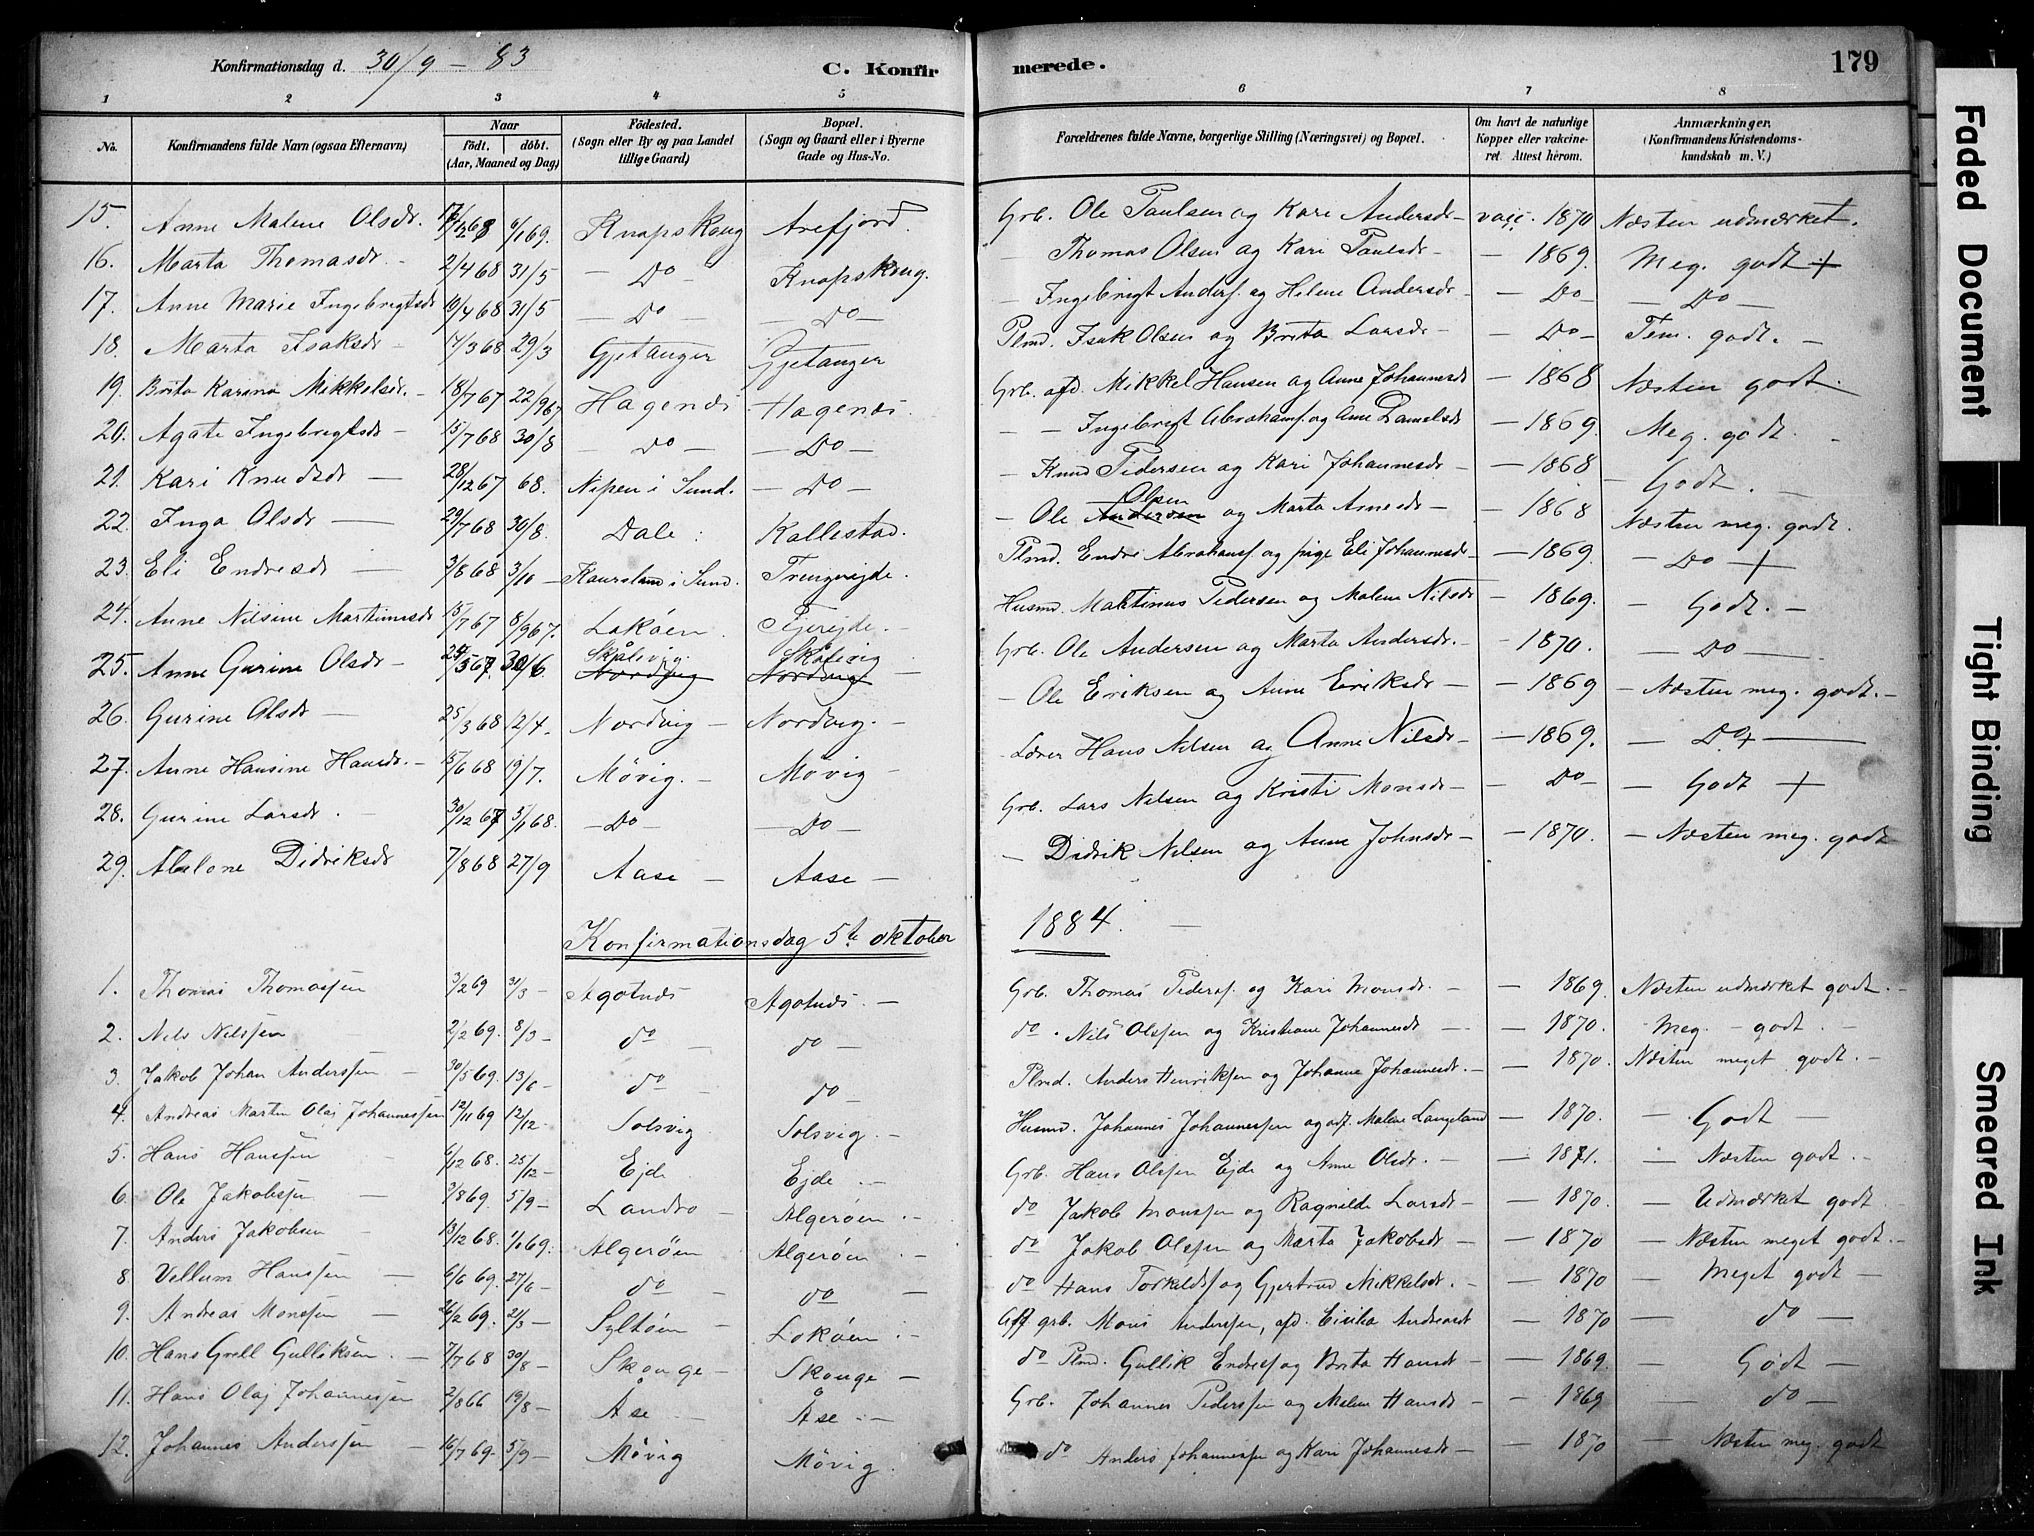 Konfirmationsdag d. 30/9 - 83 C. Konfirmerede. 179
1 2 3 4 5 6 7 8
No. Konfirmandens fulde Navn (ogsaa Efternavn) Naar födt. döbt. (Aar, Maaned og Dag) Födested. (Sogn eller By og paa Landet tillige Gaard) Bopæl. (Sogn og Gaard eller i Byerne Gade og Hus-No. Forældrenes fulde Navne, borgerlige Stilling (Næringsvei) og Bopæl. Om havt de naturlige Kopper eller vakcineret Attest herom. Anmærkninger, (Konfirmandens Kristendomskundskab m. V.)
15. Anne Malene Olsdr. 6/1 69. Knapskoug Arefjord. Grb. Ole Paulsen og Kari Andersdr - vacc. 1870 Næsten udmærket.
16. Marta Thomasdr - 2/4 68 31/5 - Do - Knapskoug. - Thomas Olsen og Kari Paulsdr - - 1869. Meg. godt +
17. Anne Marie Ingebrigtsdr 10/4 68 31/5 - Do - - Do - - Ingebrigt Anders. og Helene Andersdr - - Do - - Do -
18. Marta Isaksdr - 17/3 68 29/3 Gjetanger Gjetanger Plmd. Isak Olsen og Brita Larsdr - - Do - Tem. godt. -
19. Brita Karina Mikkelsdr. - 18/7 67 22/9 67 Hagenæs Hagenæs. Grb. afd. Mikkel Hansen og Anne Johannesdr - 1868 Næsten godt.
20. Agate Ingebrigtsdr - 15/7 68 30/8 - Do - - Do - - - Ingebrigt Abrahams. og Ane Danielsdr - 1869. Meg. godt. -
21. Kari Knudsdr - 28/12 67 68. Nipen i Sund. - Do - - Knud Pedersen og Kari Johannesdr - - 1868 - Godt. -
22. Inga Olsdr - 29/7 68 30/8. Dale. Kallestad. - Ole Andersen Olsen og Marta Arnesdr - - 1868 Næsten meg. godt.
23. Eli Endresdr - 3/8 68 3/10 - Kausland i Sund. Trengerejde. Plmd. Endre Abrahams. og pige Eli Johannesdr - - 1869. - Do +
24. Anne Nilsine Martinusdr 15/7 67 8/9 67. Lokøen. Tjerejde. - Husmd. Martinus Pedersen og Malene Nilsdr - 1869. - Godt. -
25. Anne Gurine Olsdr - 30/6. Nordvig Skålevig. Nordvig Skålevig Grb. Ole Andersen og Marta Andersdr. - - 1870. - Do -
26. Gurine Olsdr - 25/3 68 12/4. Nordvig - Nordvig. - - Ole Eriksen og Anne Eriksdr - - 1869 - Næsten meg. godt. -
27. Anne Hansine Hansdr. - 15/6 68 19/7. Møvig. - Møvig - Lærer Hans Nilsen og Anne Nilsdr - - 1869. - Do -
28. Gurine Larsdr. - 30/12 67 5/1 68. - Do - - Do - Grb. Lars Nilsen og Kristi Monsdr - - Do - - Godt +
29. Abelone Didriksdr 7/8 68 27/9 Aase - Aase - - Didrik Nilsen og Anne Johnsdr - - 1870. - Næsten meg. godt
Konfirmationsdag 5te oktober 1884.
1. Thomas Thomassen 3/2 69 31/3 - Agotnæs Agotnæs. - Grb. Thomas Peders. og Kari Monsdr. - - 1869. Næsten udmærket godt. -
2. Nils Nilssen 2/2 69. 8/3 - do - do - do. Nils Olssen og Kristiane Johannesdr - - 1870. Meg. - godt. -
3. Jakob Johan Anderssen - 30/5 69. 13/6 - do - do - Plmd. Anders Henrikssen og Johanne Johannesdr. - - 1870. Næsten meget godt. -
4. Andreas Martin Olaj Johannessen 12/11 69 12/12 - Solsvig Solsvig. - Husmd. Johannes Johannessen og gdf. Malene Langeland - 1870. - Godt -
5. Hans Hanssen - 6/12 68. 25/12 - Ejde Ejde. - Grb. Hans Olssen Ejde og Anne Olsdr. - - 1871. - Næsten godt. -
6. Ole Jakobssen - 3/8 69. 5/9 - Landro - Algerøen. - do Jakob Monssen og Ragnilde Larsdr - - 1870. - Udmærket godt
7. Anders Jakobsen - 13/12 68. 1/1 69. Algerøen Algerøen. - do Jakob Olssen og Marta Jakobsdr - - 1870 - Næsten meget godt. -
8. Vellum Hanssen - 6/6 69. 27/6 - do - do - do Hans Torkelds. og Gjertrud Mikkelsdr. - - 1870 - Meget godt -
9. Andreas Monssen - 26/2 69. 21/3 - Syltøen - Lokøen. - Aff grb. Mons Anderssen, afd. Cicilia Andreasdr - 1870 - do -
10. Hans Grell Gulliksen. - 7/7 68 30/8 - Skouge - Skouge - do Plmd. Gullik Endres. og Brita Hansdr - - 1869. - Godt -
11. Hans Olaj Johannessen 2/8 66 19/8 - Åse - Åse - Grb. Johannes Pederssen og Malene Hansdr - - 1869 - do -
12. Johannes Anderssen - 16/7 69. 5/9 - Møvig Møvig. - do Anders Johannessen og Kari Johannesdr - - 1870 - Næsten meg. godt
Faded Document
Tight Binding
Smeared Ink